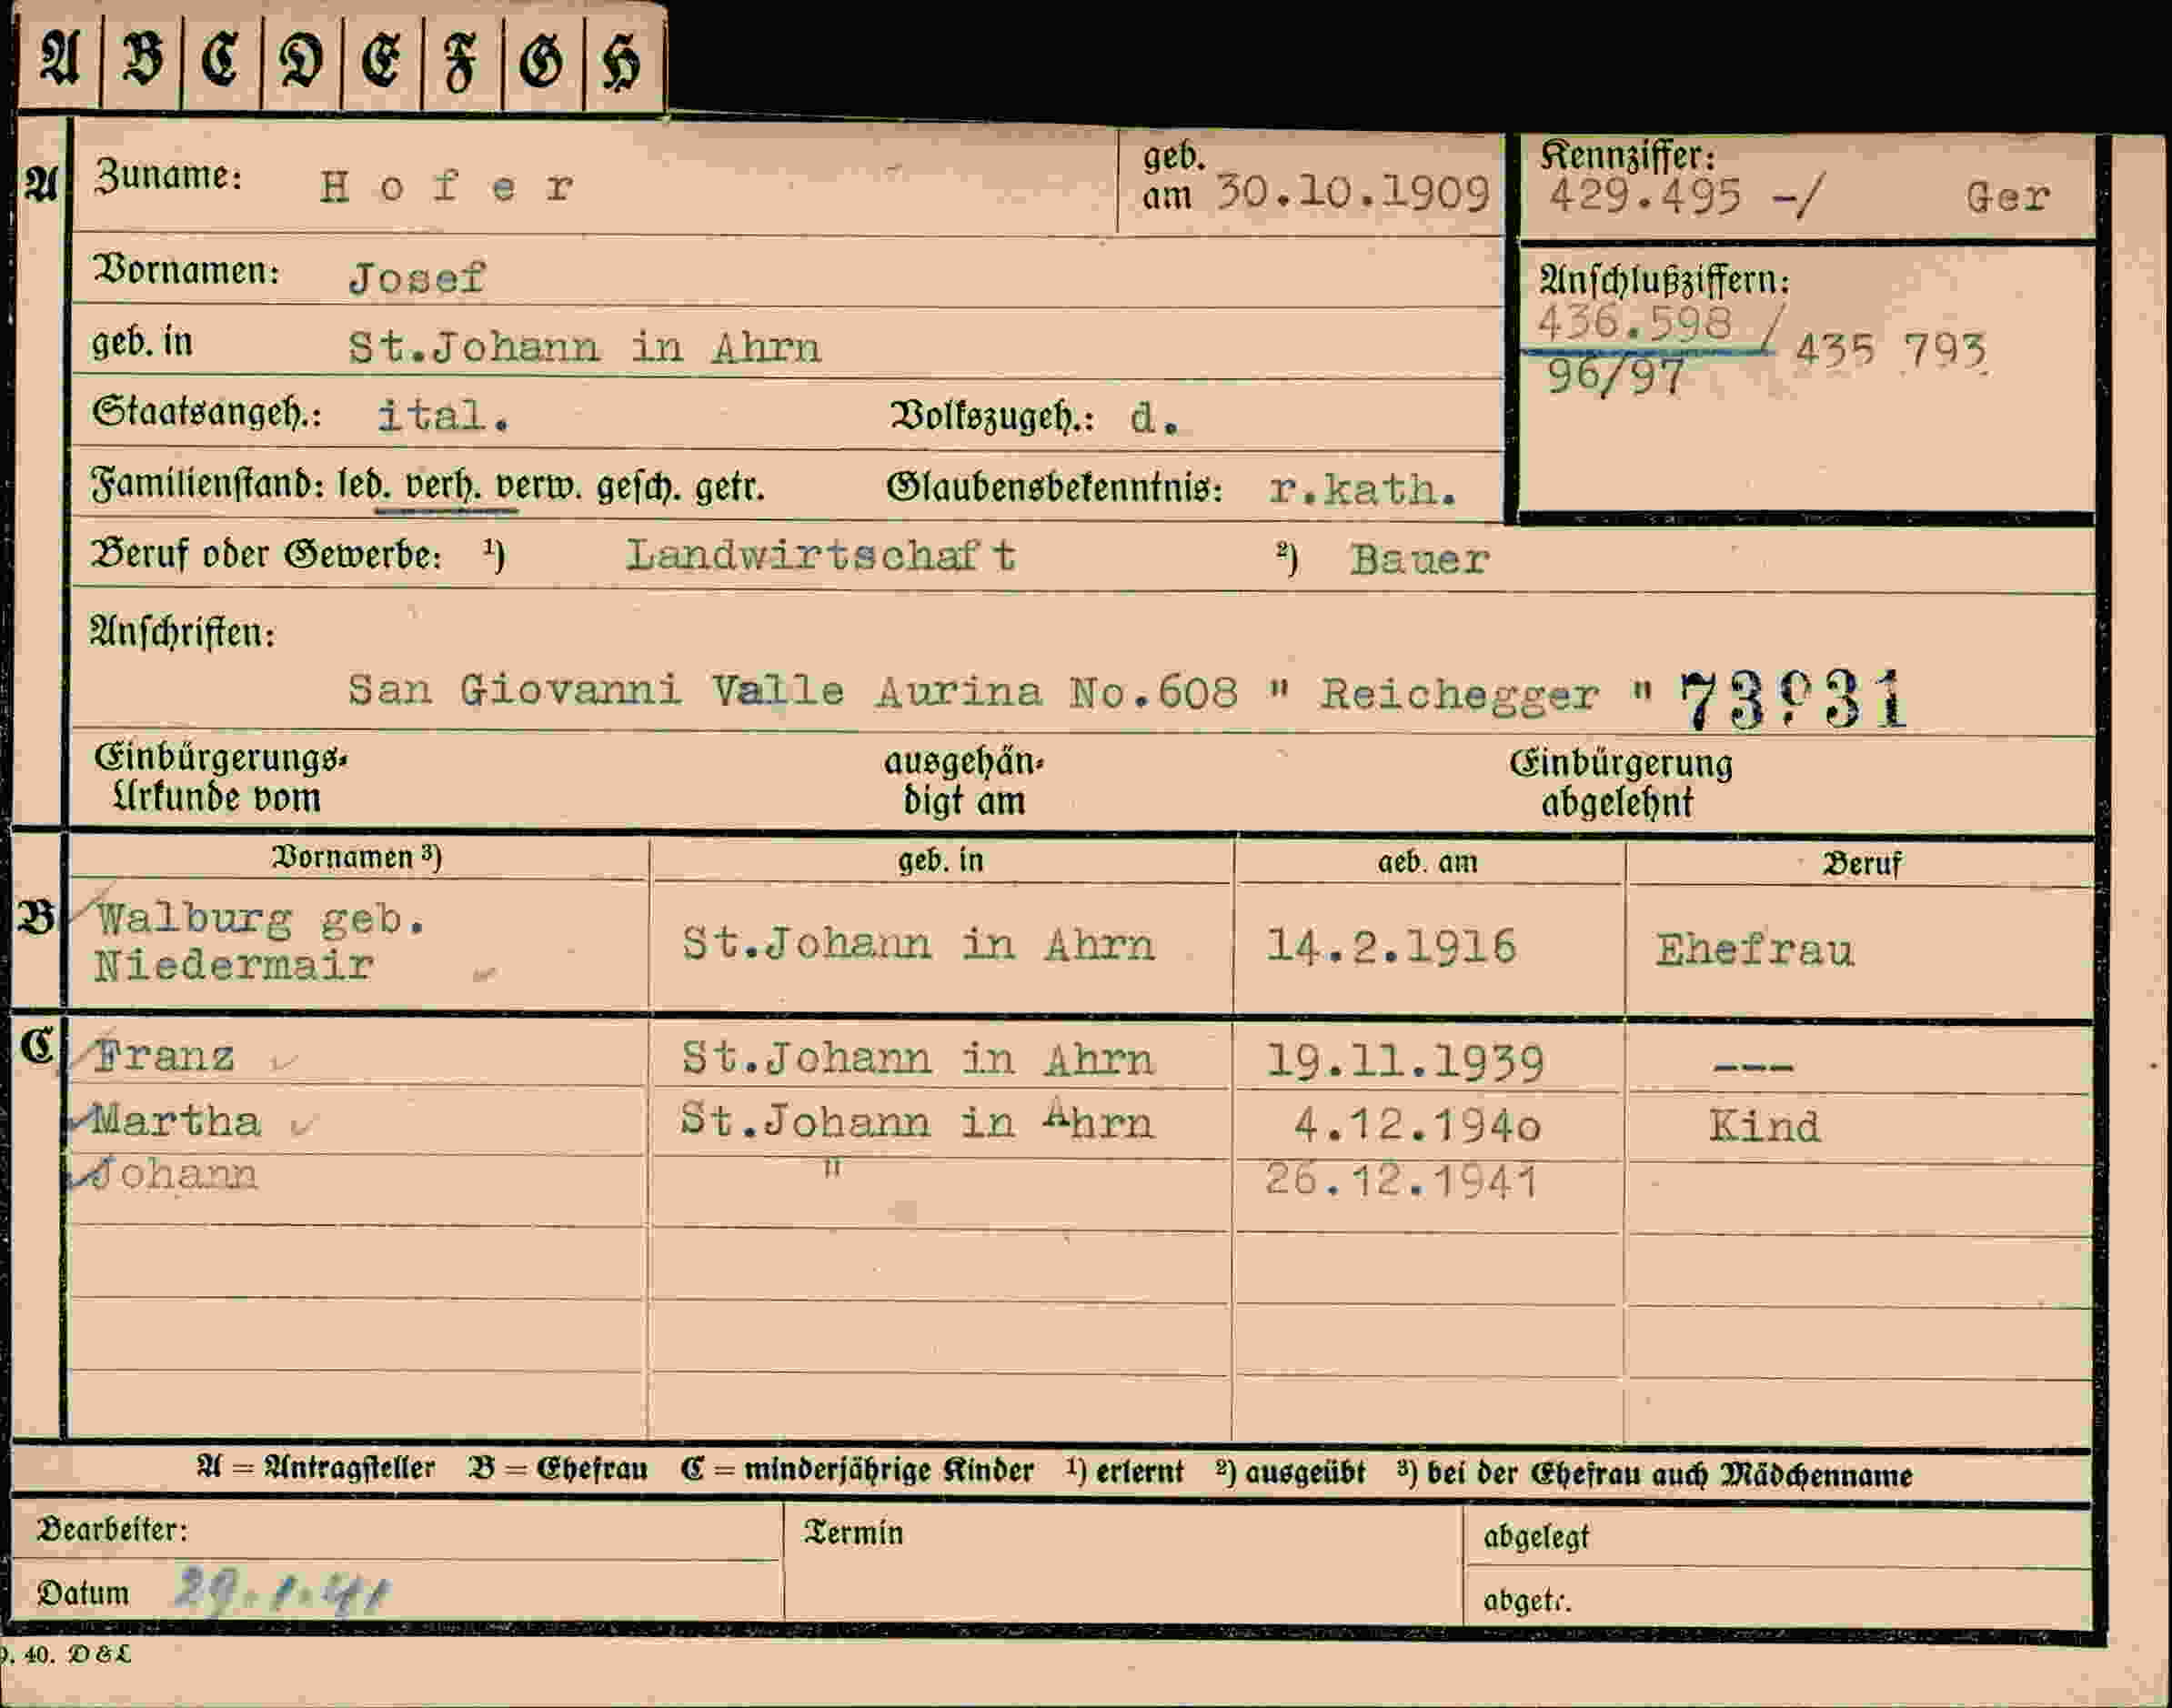 A B C D E F G H
A Zuname: Hofer geb. am 30.10.1909 Kennziffer: 429.495 -/ Ger
Vornamen: Josef
Anschlußziffern:
436.598 / 435 793
96/97
geb. in St.Johann in Ahrn
Staatsangeh.: ital. Volkszugeh.: d.
Familienstand: led. verh. verw. gesch. getr. Glaubensbekenntnis: r.kath.
Beruf oder Gewerbe: ¹) Landwirtschaft ²) Bauer
Anschriften:
San Giovanni Valle Aurina No.608 " Reichegger "
Einbürgerungs- ausgehän- Einbürgerung
Urkunde vom digt am abgelehnt
Vornamen ³) geb. in geb. am Beruf
B Walburg geb.
Niedermair St.Johann in Ahrn 14.2.1916 Ehefrau
C Franz St.Johann in Ahrn 19.11.1939 ---
Martha St.Johann in Ahrn 4.12.194o Kind
Johann " 26.12.1941
A = Antragsteller B = Ehefrau C = minderjährige Kinder ¹) erlernt ²) ausgeübt ³) bei der Ehefrau auch Mädchenname
Bearbeiter: Termin abgelegt
Datum 29.1.41 abgetr.
40. D & L